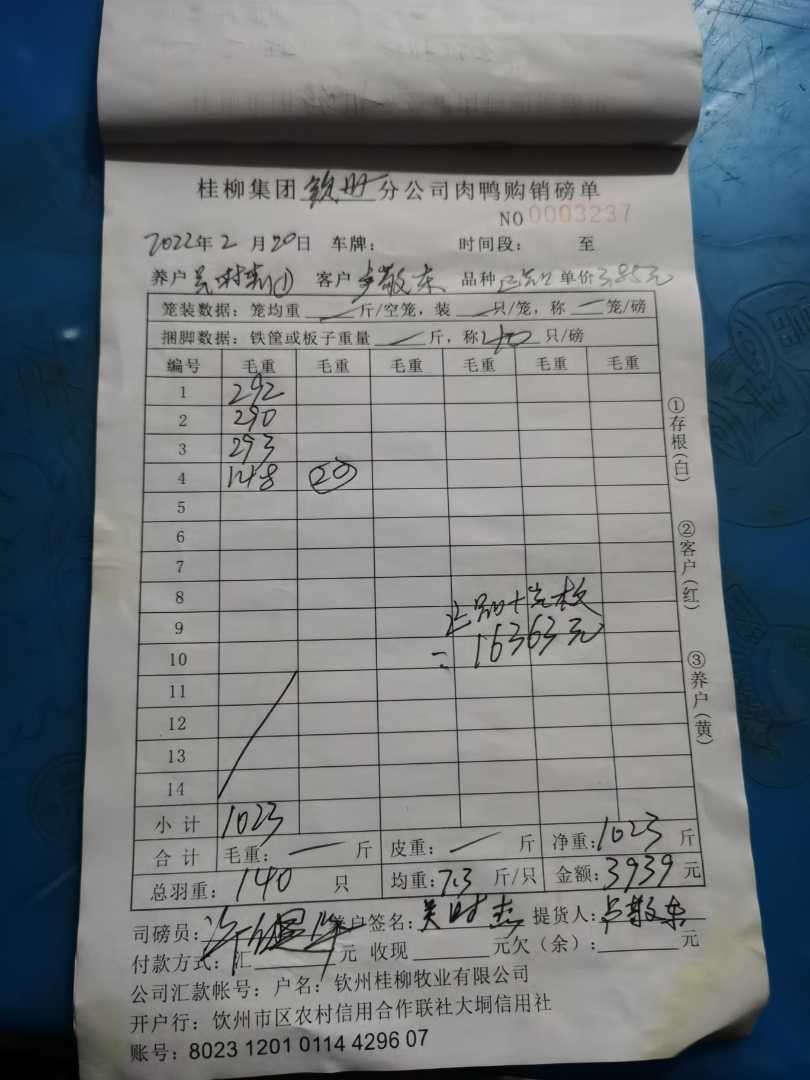 桂柳集团钦州分公司肉鸭购销磅单
NO 0003237
2022年2月20日 车牌: 时间段: 至
养户吴时杰① 客户卢敬东 品种 单价3.85元
笼装数据: 笼均重 斤/空笼, 装 只/笼, 称 笼/磅
捆脚数据: 铁筐或板子重量 斤, 称40只/磅
编号 毛重 毛重 毛重 毛重 毛重 毛重
1 292
2 290
3 293
4 148 20
5
6
7
8
9
10
=16363元
11
12
13
14
小计 1023
合计 毛重: 斤 皮重: 斤 净重:1023斤
总羽重: 140 只 均重:7.3斤/只 金额:3939元
司磅员: 养户签名:吴时杰 提货人:卢敬东
付款方式: 汇 元 收现 元欠(余): 元
公司汇款帐号: 户名: 钦州桂柳牧业有限公司
开户行: 钦州市区农村信用合作联社大垌信用社
账号: 8023 1201 0114 4296 07
①存根(白)
②客户(红)
③养户(黄)